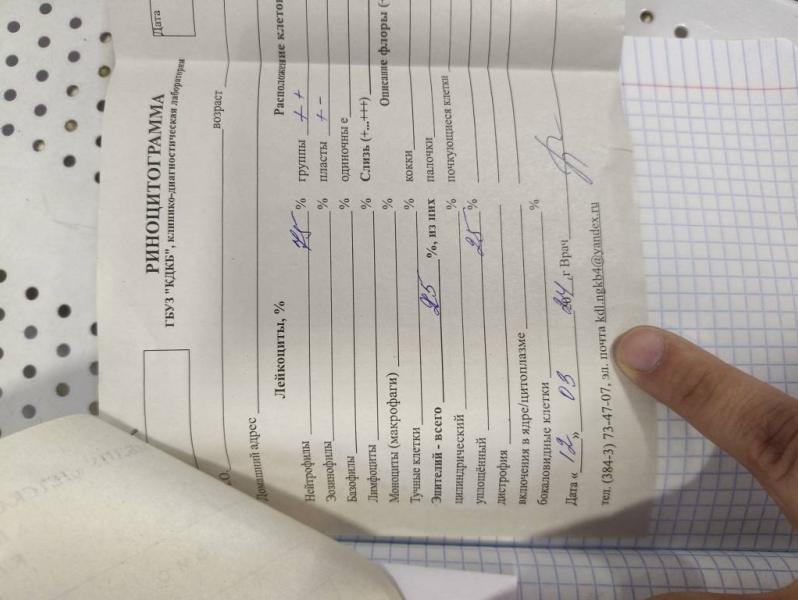 Дата
РИНОЦИТОГРАММА
ГБУЗ "КДКБ", клинико-диагностическая лаборатория
возраст
Домашний адрес
Лейкоциты, %
Нейтрофилы 75 %
Эозинофилы %
Базофилы %
Лимфоциты %
Моноциты (макрофаги) %
Тучные клетки %
Эпителий - всего 25 %, из них
цилиндрический %
уплощённый 25 %
дистрофия
включения в ядре/цитоплазме
бокаловидные клетки %
Расположение клеток
группы + +
пласты + -
одиночны е
Слизь (+...+++)
Описание флоры (+
кокки
палочки
почкующиеся клетки
Дата « 12 » 03 г Врач
тел. (384-3) 73-47-07, эл. почта kdl.ngkb4@yandex.ru